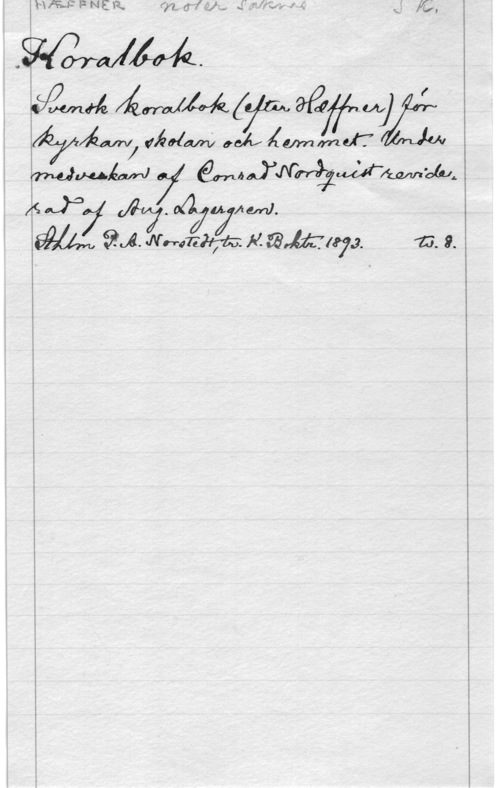 HÆFFNER noter saknas S K.
Koralbok.
Svensk koralbok (efter Hæffner) för
kyrkan, skolan och hemmet. Under
medverkan af Conrad Nordquist revide-
rad af Aug. Lagergren.
Sthlm P. A. Norstedt, tr. K. Boktr. 1893. tv. 8.